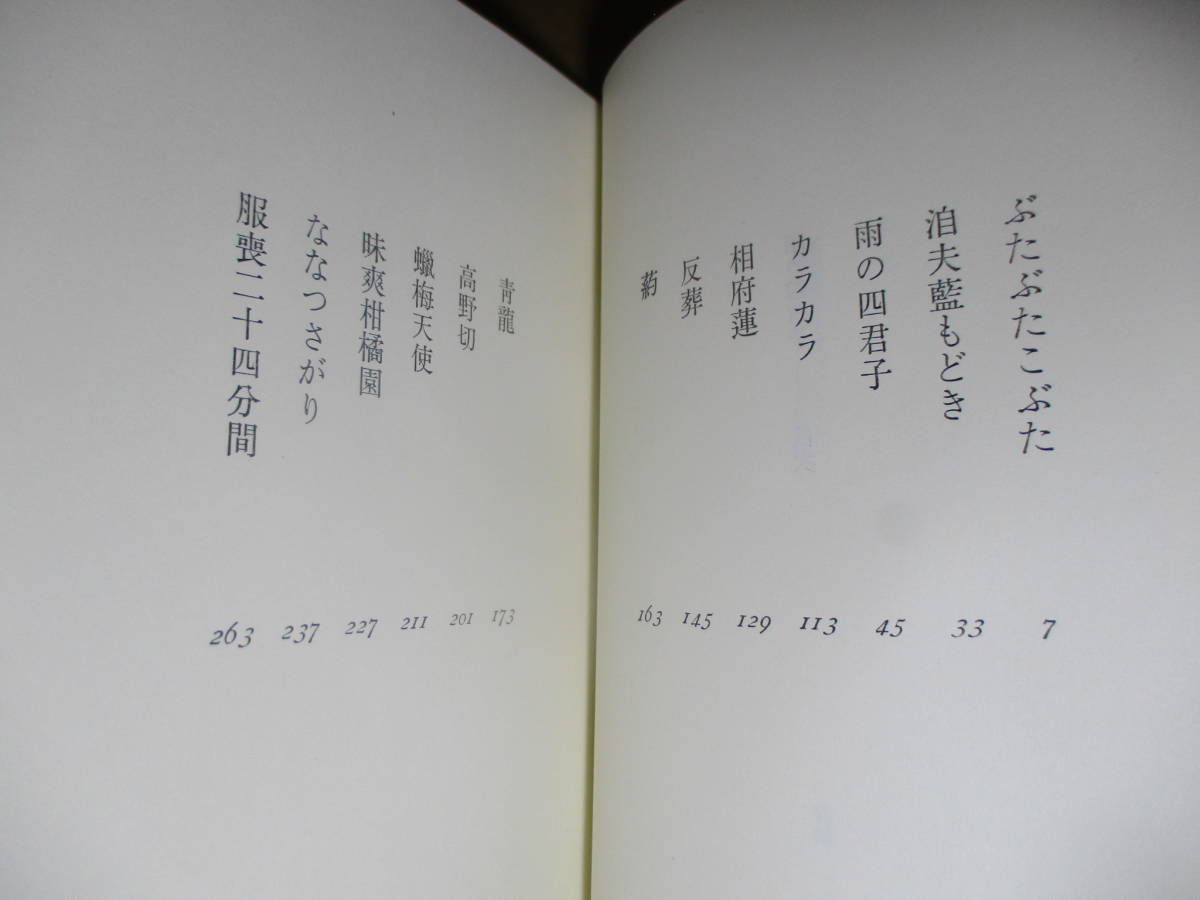 ぶたぶたこぶた 7
洎夫藍もどき 33
雨の四君子 45
カラカラ 113
相府蓮 129
反葬 145
葯 163
青龍 173
高野切 201
蠟梅天使 211
昧爽柑橘園 227
ななつさがり 237
服喪二十四分間 263